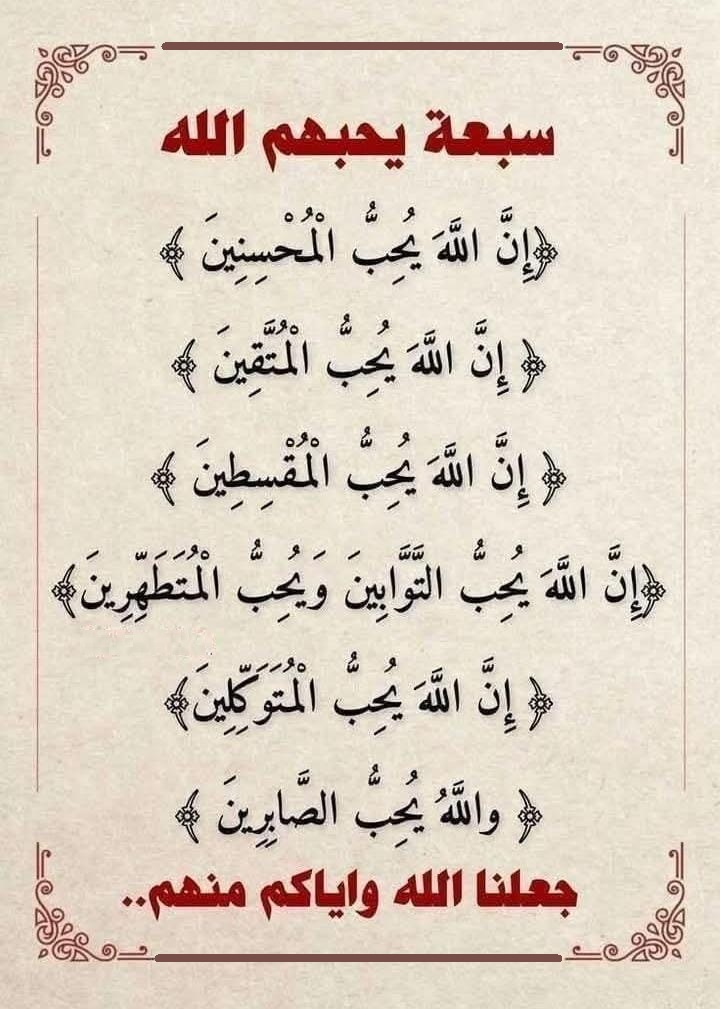 سبعة يحبهم الله
﴿إِنَّ اللَّهَ يُحِبُّ الْمُحْسِنِينَ ﴾
﴿ إِنَّ اللَّهَ يُحِبُّ الْمُتَّقِينَ ﴾
﴿ إِنَّ اللَّهَ يُحِبُّ الْمُقْسِطِينَ ﴾
﴿إِنَّ اللَّهَ يُحِبُّ التَّوَّابِينَ وَيُحِبُّ الْمُتَطَهِّرِينَ﴾
﴿ إِنَّ اللَّهَ يُحِبُّ الْمُتَوَكِّلِينَ﴾
﴿ واللَّهُ يُحِبُّ الصَّابِرِينَ ﴾
جعلنا الله واياكم منهم..